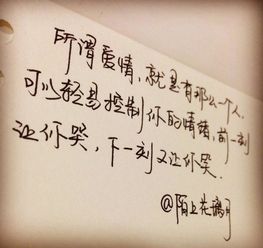 所谓爱情，就是有那么一个人．
可以轻易控制你的情绪，前一刻
让你哭，下一刻又让你笑．
@陌上花璃月